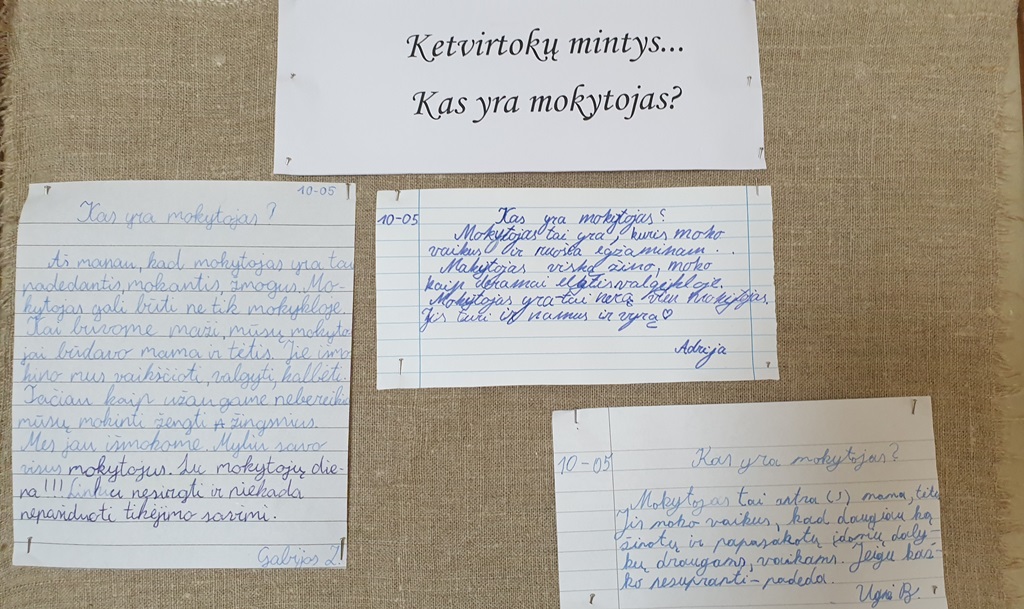 Ketvirtokų mintys...
Kas yra mokytojas?
10-05
Kas yra mokytojas?
Aš manau, kad mokytojas yra tai
padedantis, mokantis, žmogus. Mo-
kytojas gali būti ne tik mokykloje.
Kai buvome maži, mūsų mokyto
jai būdavo mama ir tėtis. Jie išmo
kino mus vaikščioti, valgyti, kalbėti.
Tačiau kaip užau game nebereikė
mūsų mokinti žengti žingsnius.
Mes jau išmokome. Myliu savo
visus mokytojus. Su mokytojų die-
na!!! Linkiu nesirgti ir niekada
neparsiduoti tikėjimo savimi.
Gabrijas Z.
10-05
Kas yra mokytojas?
Mokytojas tai yra, kuris moko
vaikus ir ruošia egzaminam...
Mokytojas viską žino, moko
kaip deramai valgykloje.
Mokytojas yra-tai nėra vien mokytojas.
Jis turi ir namus ir vyrą♡
Adrija
10-05
Kas yra mokytojas?
Mokytojas tai antra (s) mama, tėtis
Jis moko vaikus, kad daugiau ką
žinotų ir papasakotų įdomių daly-
kų draugams, vaikams. Jeigu kaž-
ko nesupranti-padeda.
Ugnė B.